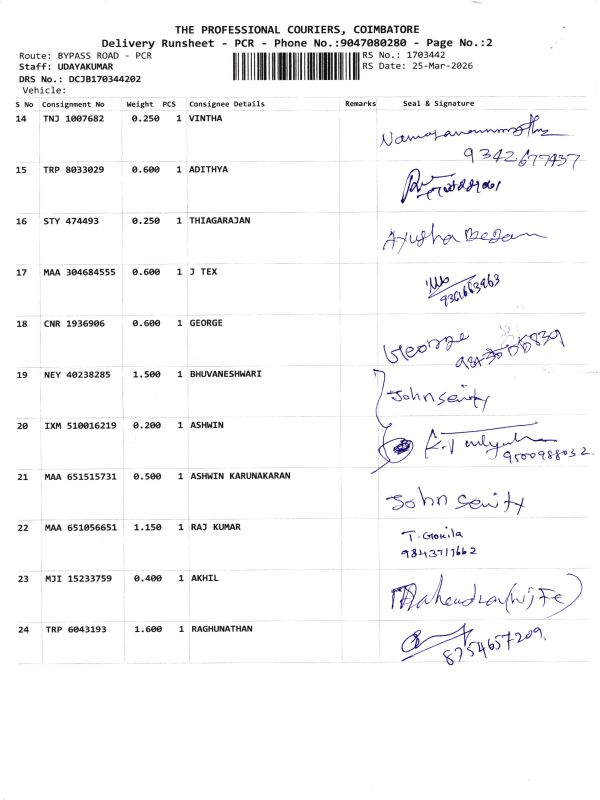 THE PROFESSIONAL COURIERS, COIMBATORE
Delivery Runsheet - PCR - Phone No.:9047080280 - Page No.:2
Route: BYPASS ROAD - PCR
RS No.: 1703442
Staff: UDAYAKUMAR
RS Date: 25-Mar-2026
DRS No.: DCJB170344202
Vehicle:
S No Consignment No Weight PCS Consignee Details Remarks Seal & Signature
14 TNJ 1007682 0.250 1 VINTHA
9342677437
15 TRP 8033029 0.600 1 ADITHYA
16 STY 474493 0.250 1 THIAGARAJAN
Ayusha Begam
17 MAA 304684555 0.600 1 J TEX
9361663963
18 CNR 1936906 0.600 1 GEORGE
George
19 NEY 40238285 1.500 1 BHUVANESHWARI
John
20 IXM 510016219 0.200 1 ASHWIN
9500988032.
21 MAA 651515731 0.500 1 ASHWIN KARUNAKARAN
John
22 MAA 651056651 1.150 1 RAJ KUMAR
T. Gokila
9843711662
23 MJI 15233759 0.400 1 AKHIL
Mahendran (wife)
24 TRP 6043193 1.600 1 RAGHUNATHAN
8754657209.